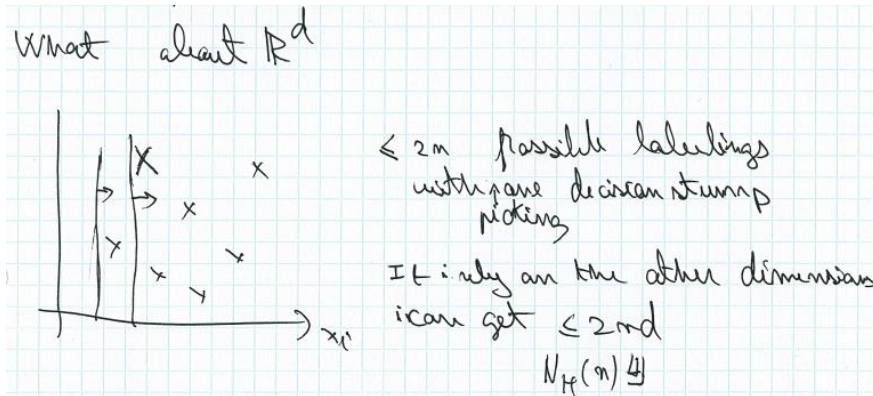 What about ℝ^d
≤ 2n possible labelings
with one decision stump
picking
If i rely on the other dimensions
i can get ≤ 2nd
N_H(n)
x_i